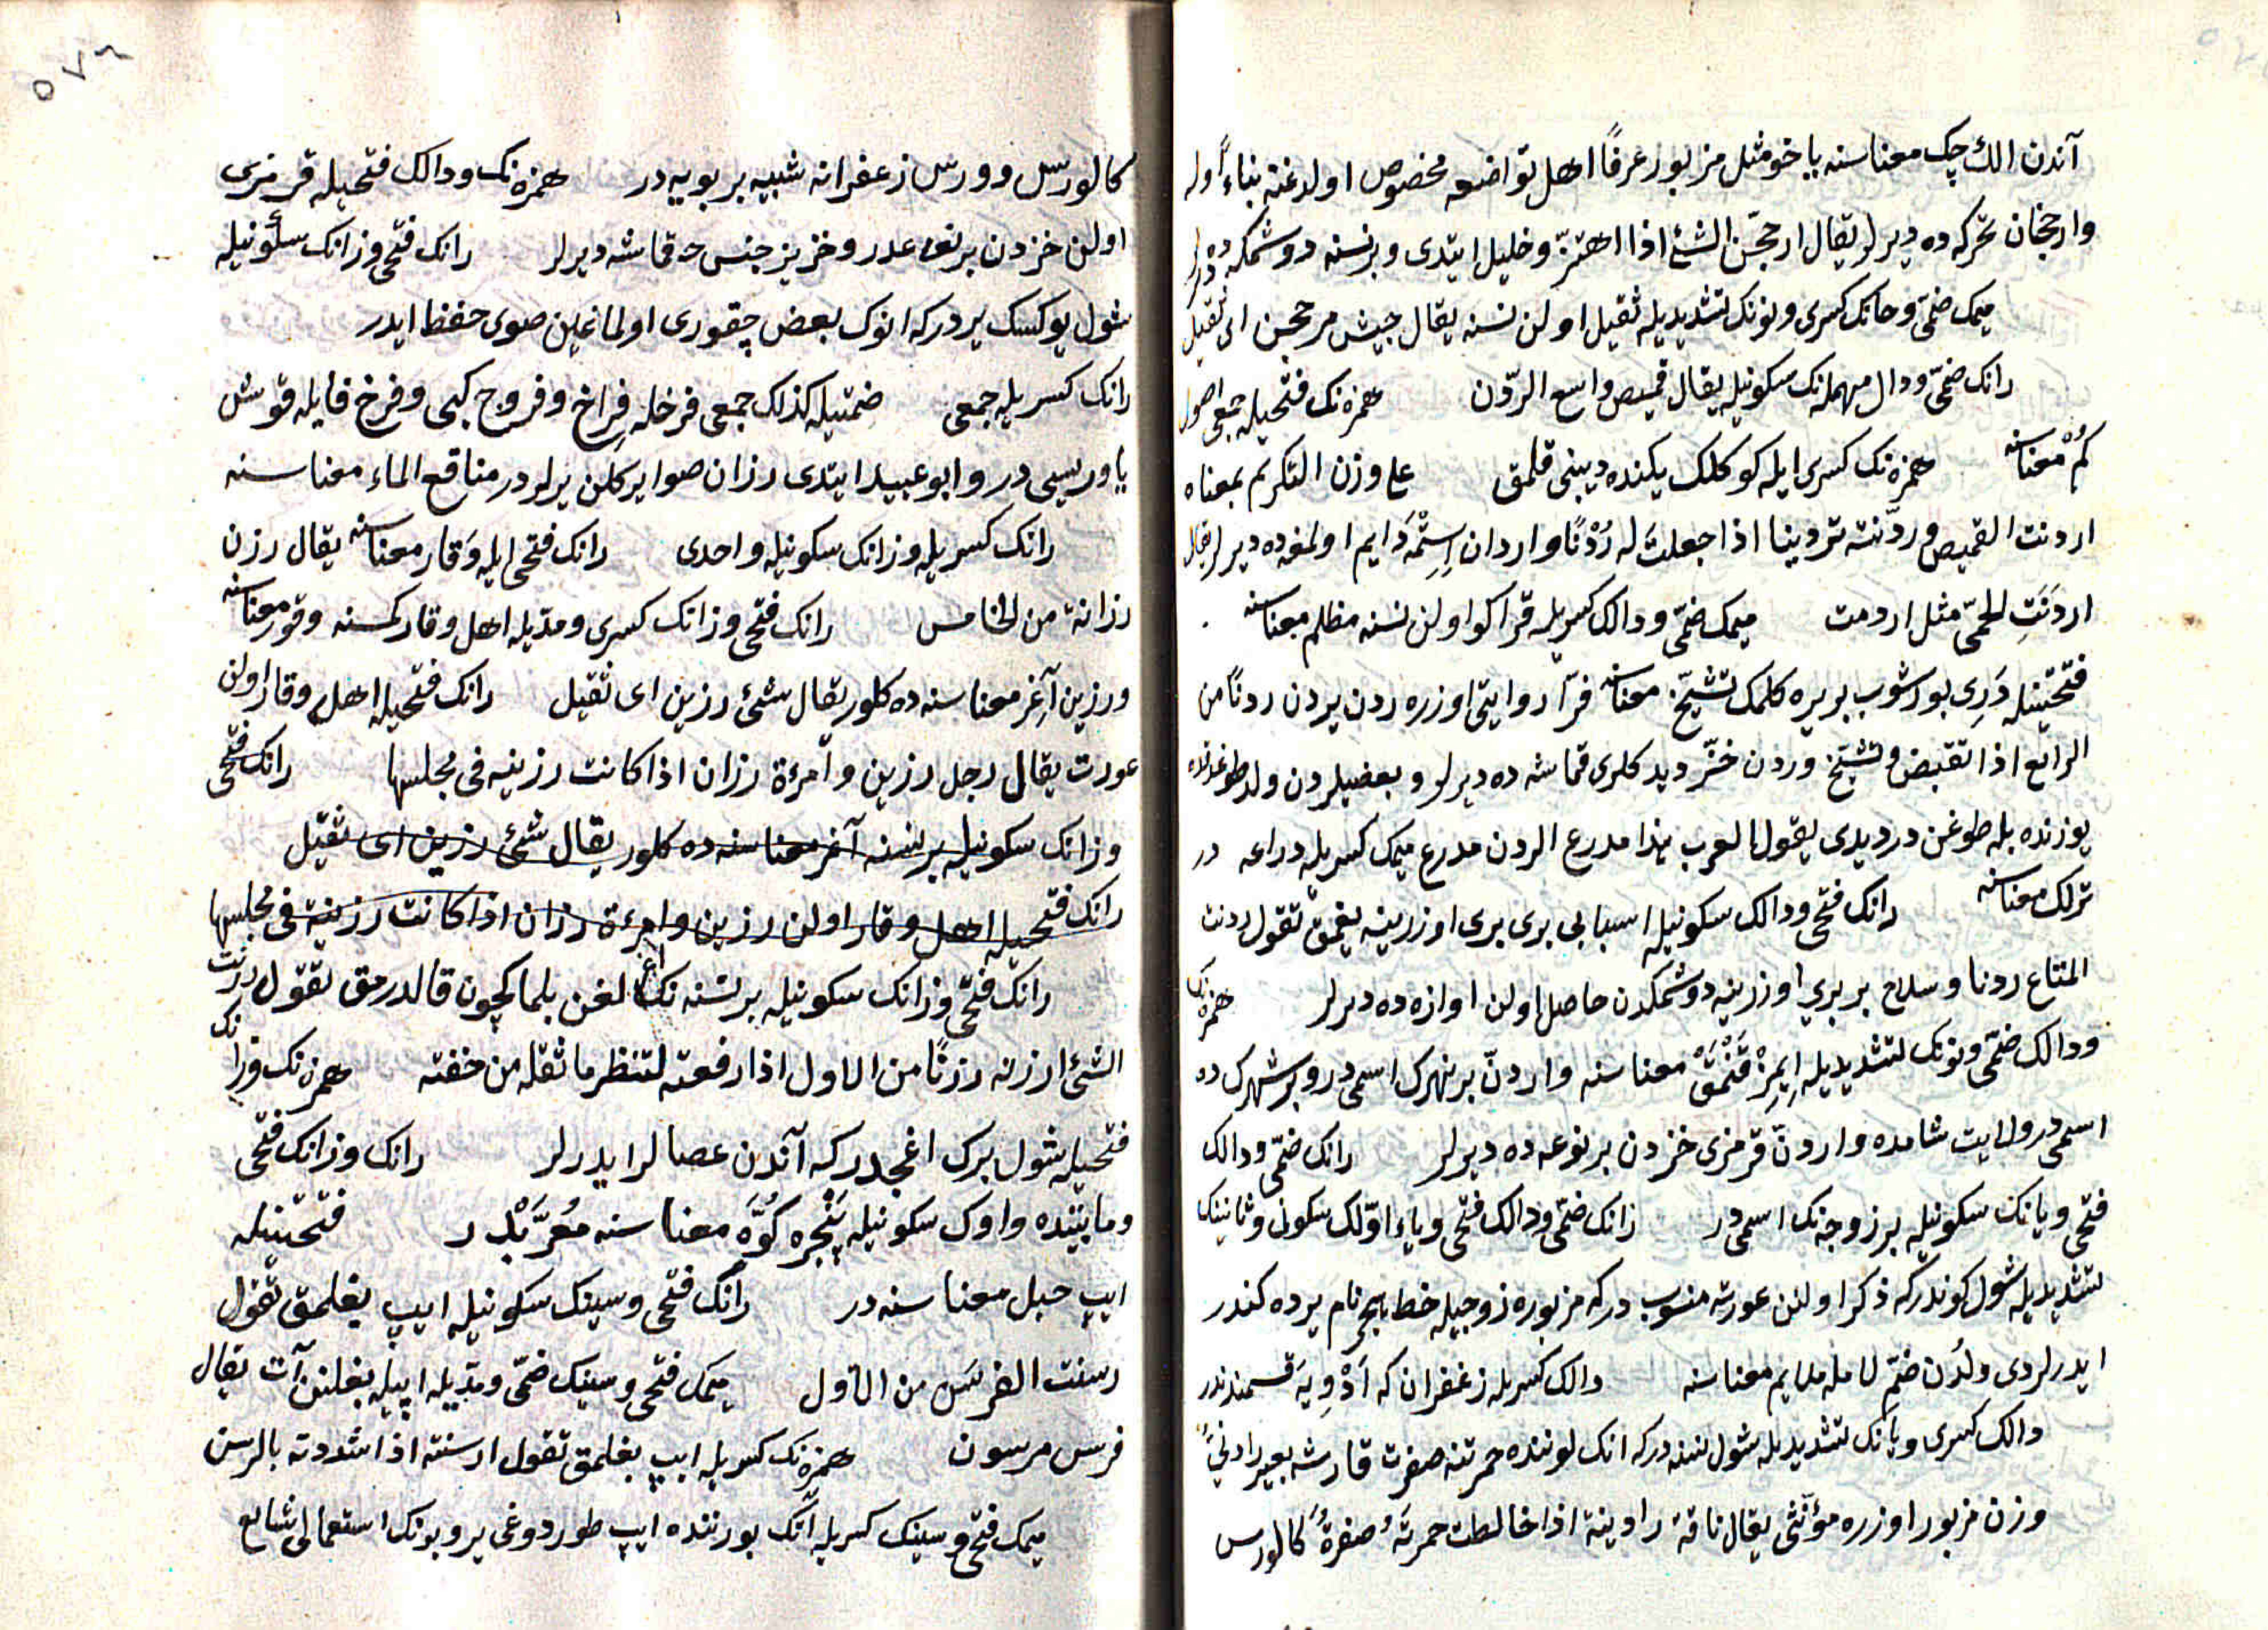 آندن الك چك معناسنه ياخو مثل مزبور عرفاً اهل تواضعه مخصوص اولدغنه بناءً اوله
وارجحنان تحركه ده ديرلر يقال ارجحن الشئ اذا اهتزّ و خليل ايتدى و برنسنه دوشمكه ده ديرلر
ميمك ضمّى و حانك كسرى و نونك تشديديله ثقيل اولن نسنه يقال جيش مرجحن اى ثقيل
رانك ضمّى و دال مهمله نك سكونيله يقال قميص واسع الردن همزه نك فتحيله جمعى اصول
كُمْ معناسنه همزه نك كسرى ايله كوكلك يكنه ديبنى قلمق على وزن التكريم بمعناه
اردنت القميص و ردّنته تردينا اذا جعلت له رُدْنًا و اردان اِسِتْمَه دايم اولمغه ده ديرلر يقال
اردَنَتِ الحمّى مثل اردمت ميمك ضمّى و دالك كسريله قراكو اولن نسنه مظلم معناسنه
فتحتينله دَرِى بورشوب بريره كلمك تشيّخ معناسنه فرّا روايتى اوزره ردن يردن ردنًا من
الرابع اذا تقبض و تشيّخ و ردن خزّ ديدكلرى قماشه ده ديرلر و بعضيلر ردن ولد طوغدقده
يوزنده بله طوغن در ديدى يقول العرب هذا مدرع الردن مدرع ميمك كسريله دراعه در
ترلك معناسنه رانك فتحى و دالك سكونيله اسبابى برى برى اوزرينه يغمق تقول ردنت
المتاع ردنا و سلاح بربرى اوزرينه دوشمكدن حاصل اولن اوازه ده ديرلر همزه نك
و دالك ضمّى و نونك تشديديله اِيمِزْ قَنْمَقْ معناسنه و اردنّ برنهرك اسمى در و برشهرك ده
اسمى در ولايت شامده و اردنّ قرمزى خزدن برنوعه ده ديرلر رانك ضمّى و دالك
فتحى و يانك سكونيله بر زوجه نك اسمى در رانك ضمّى و دالك فتحى و ياء اوّلك سكون و ثانينك
تشديديله شول كوندر كه ذكر اولنن عورته منسوب در كه مزبوره زوجيله خط هجر نام يرده كندر
ايدرلردى ولدُن ضمّ لامله ملايم معناسنه دالك كسريله زغفران كه اَدْوِيَه قسمندندر
دالك كسرى و يانك تشديديله شول نسنه در كه انك لوننده حمرتنه صفرت قارشه بعير رادنىّ
وزن مزبور اوزره مؤنّثى يقال ناقة رادنية اذا خالطت حمرتَهُ صفرةٌ كالورس
كالورس و ورس زعفرانه شبيه بر بويه در همزه نك و دالك فتحيله قرمزى
اولن خزدن برنوعدر و خز يز جنس حه قماشه ديرلر رانك فتحى و زانك سكونيله
شول يوكسك يردر كه انوك بعض چقورى اولمانمين صوى حفظ ايدر
رانك كسريله جمعى ضمتيله كذلك جمعى فرخله فِراخ و فروخ كبى و فرخ فايله قوش
ياوريسى در و ابو عبيد ايتدى رزان صو ايركلن يرلردر مناقع الماء معناسنه
رانك كسريله و زانك سكونيله واحدى رانك فتحى ايله وَقار معناسنه يقال رزن
رزانة من الخامس رانك فتحى و زانك كسرى و مدّيله اهل وقار كمسنه وقور معناسنه
و رزين آغِر معناسنه ده كلور يقال شئ رزين اى ثقيل رانك فتحيله اهل وقار اولن
عورت يقال رجل رزين و امرءة رزان اذا كانت رزينه فى مجلسها رانك فتحى
و زانك سكونيله برنسنه آغر معناسنه ده كلور يقال شئ رزين اى ثقيل
رانك فتحيله اهل وقار اولن رزين و امرءة رزان اذا كانت رزينة فى مجلسها
رانك فتحى و زانك سكونيله برنسنه نك اغرلغن بلمك ايچون قالدرمق تقول رزنت
الشئ ارزنه رزنًا من الاول اذا رفعته لتنظر ما ثقله من خفته همزه نك و زانك
فتحيله شول برك اغجدر كه آندن عصالر ايدرلر رانك و زانك فتحى
و مابيننده واوك سكونيله پَنْجِرَه كُوَّه معناسنه مُعَرَّبْدر فتحتينله
ايپ حبل معناسنه در رانك فتحى و سينك سكونيله ايپ بغلمق تقول
رسنت الفرس من الاول ميمك فتحى و سينك ضمّى و مدّيله ايپيله بغلنن آت يقال
فرس مرسون همزه نك كسريله ايپ بغلمق تقول ارسنته اذا شددته بالرسن
ميمك فتحى و سينك كسريله آنك بورننده ايپ طوردوغى ير و بونك استعمالى شايع